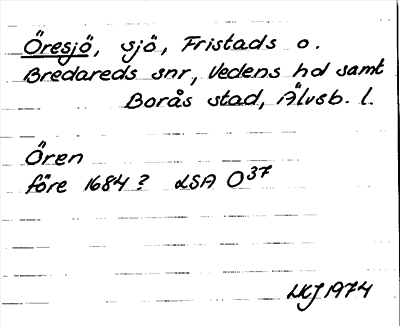 Öresjö, sjö, Fristads o.
Bredareds snr, Vedens hd samt
Borås stad, Älvsb. l.
Ören
före 1684? LSA O37
LKJ 1974